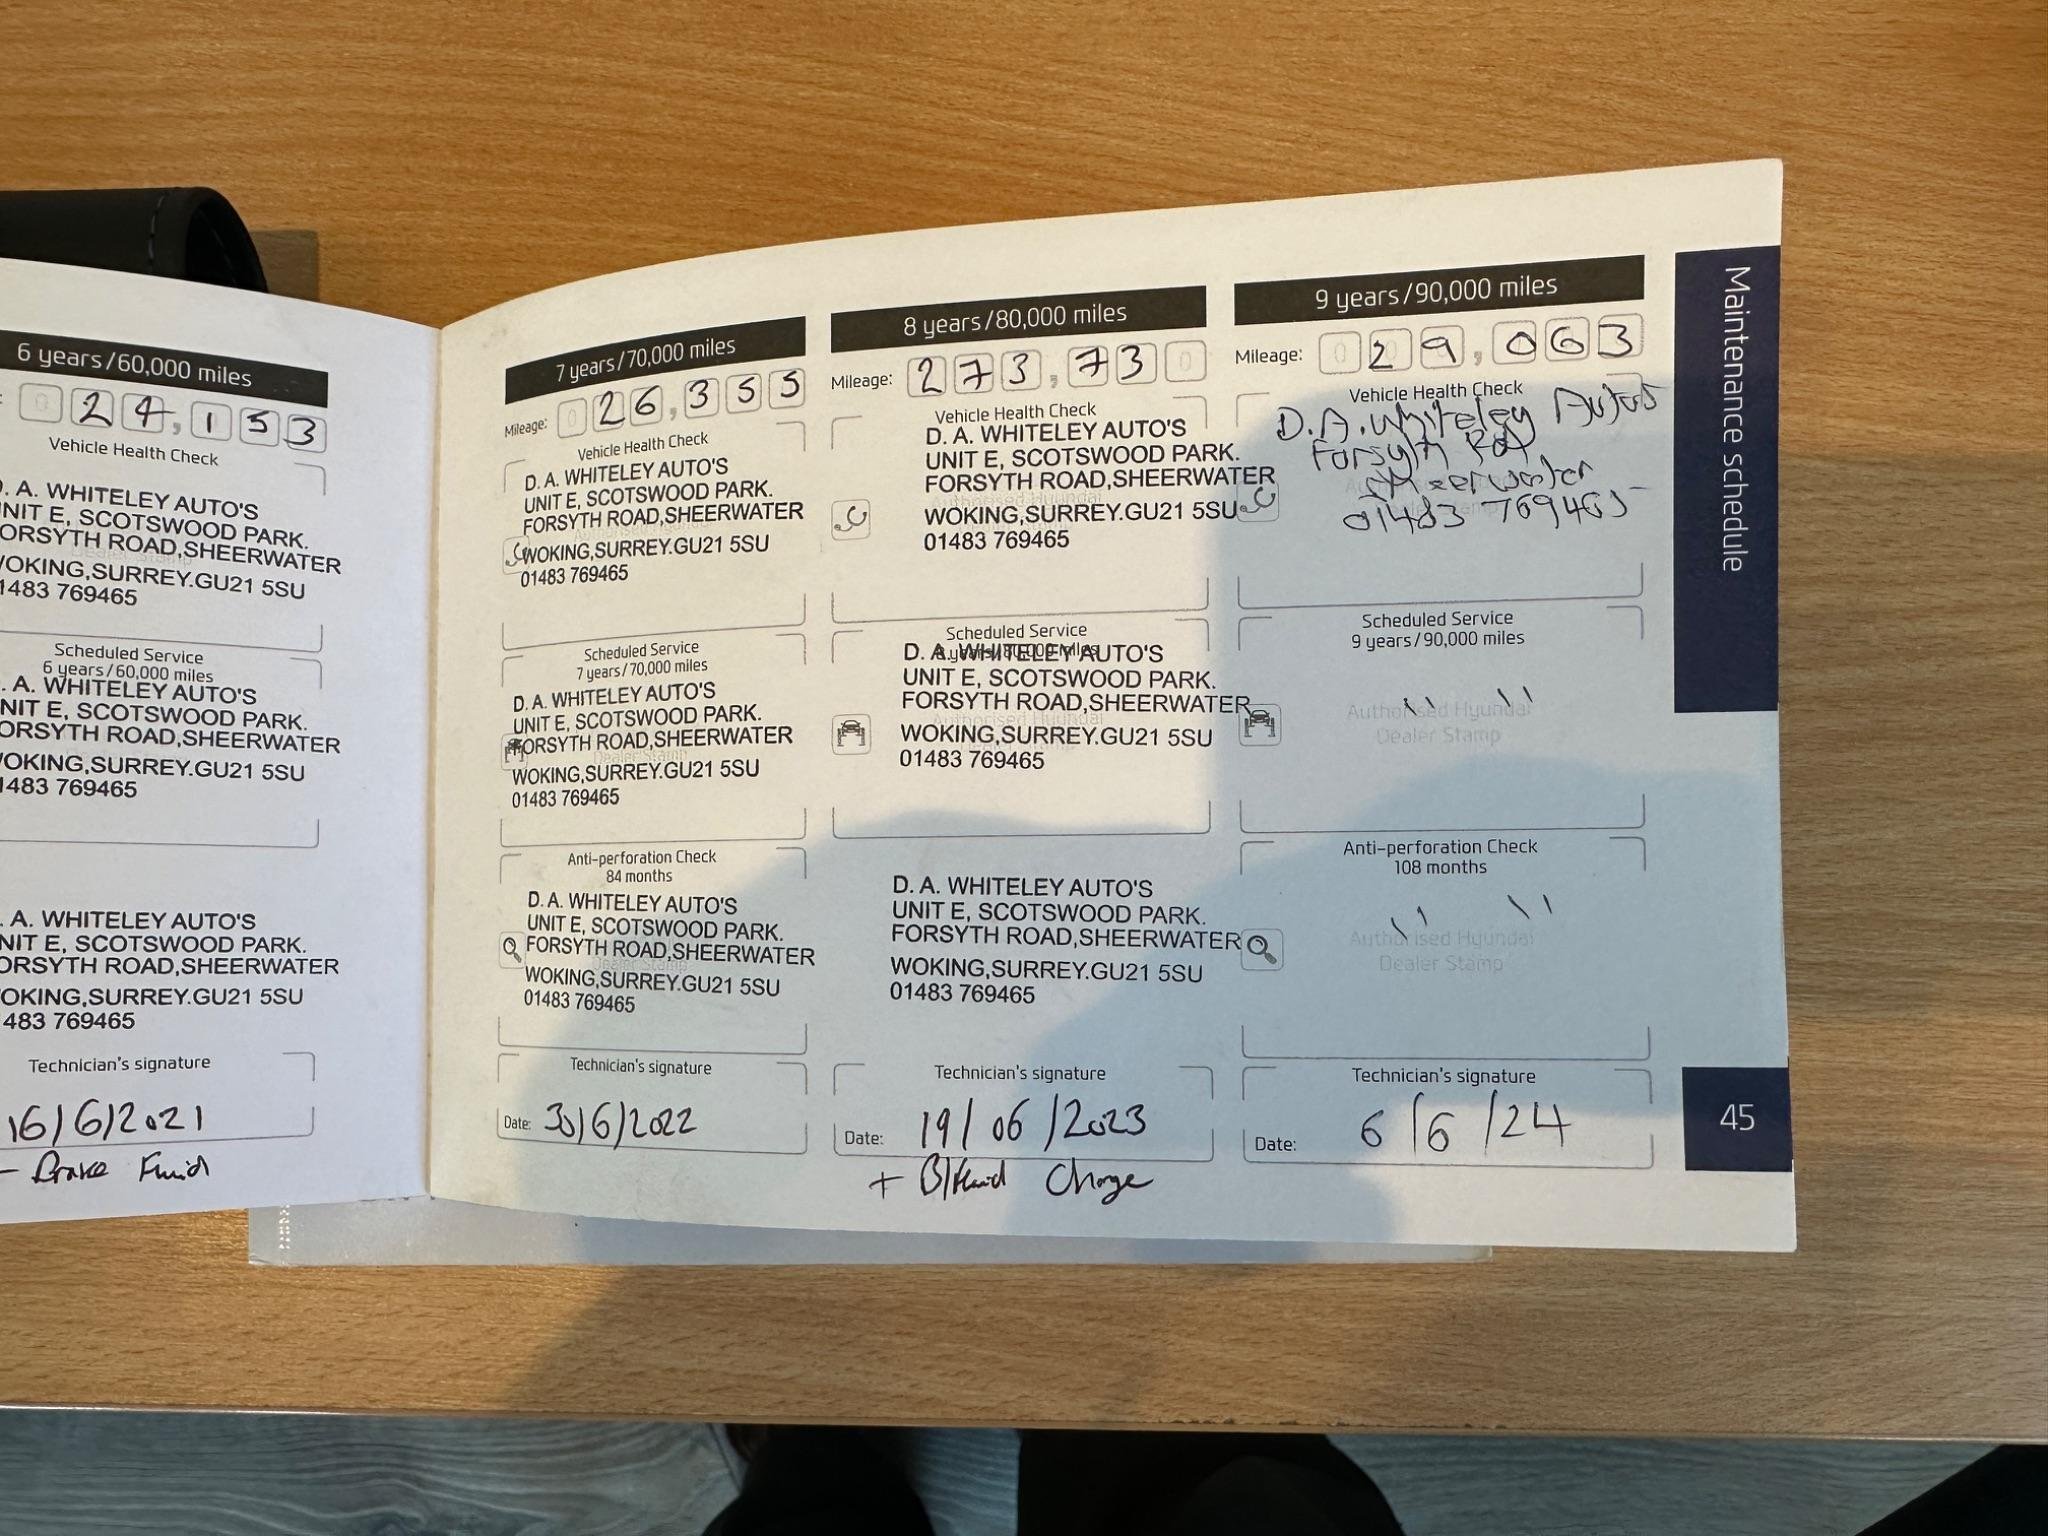 6 years/60,000 miles
: 0 24,153
Vehicle Health Check
. A. WHITELEY AUTO'S
NIT E, SCOTSWOOD PARK.
ORSYTH ROAD,SHEERWATER
WOKING,SURREY.GU21 5SU
1483 769465
Scheduled Service
6 years/60,000 miles
. A. WHITELEY AUTO'S
NIT E, SCOTSWOOD PARK.
ORSYTH ROAD,SHEERWATER
WOKING,SURREY.GU21 5SU
1483 769465
. A. WHITELEY AUTO'S
NIT E, SCOTSWOOD PARK.
ORSYTH ROAD,SHEERWATER
OKING,SURREY.GU21 5SU
483 769465
Technician's signature
16/6/2021
- Brake Fluid
7 years/70,000 miles
Mileage: 0 26,355
Vehicle Health Check
D. A. WHITELEY AUTO'S
UNIT E, SCOTSWOOD PARK.
FORSYTH ROAD,SHEERWATER
WOKING,SURREY.GU21 5SU
01483 769465
Scheduled Service
7 years/70,000 miles
D. A. WHITELEY AUTO'S
UNIT E, SCOTSWOOD PARK.
FORSYTH ROAD,SHEERWATER
Dealer Stamp
WOKING,SURREY.GU21 5SU
01483 769465
Anti-perforation Check
84 months
D. A. WHITELEY AUTO'S
UNIT E, SCOTSWOOD PARK.
FORSYTH ROAD,SHEERWATER
Dealer Stamp
WOKING,SURREY.GU21 5SU
01483 769465
Technician's signature
Date: 30/6/2022
8 years/80,000 miles
Mileage: 273,730
Vehicle Health Check
D. A. WHITELEY AUTO'S
UNIT E, SCOTSWOOD PARK.
FORSYTH ROAD,SHEERWATER
Authorised Hyundai
WOKING,SURREY.GU21 5SU
01483 769465
Scheduled Service
8 years/80,000 miles
D. A. WHITELEY AUTO'S
UNIT E, SCOTSWOOD PARK.
FORSYTH ROAD,SHEERWATER
Authorised Hyundai
WOKING,SURREY.GU21 5SU
01483 769465
D. A. WHITELEY AUTO'S
UNIT E, SCOTSWOOD PARK.
FORSYTH ROAD,SHEERWATER
WOKING,SURREY.GU21 5SU
01483 769465
Technician's signature
Date: 19/06/2023
+ B/Fluid Change
9 years/90,000 miles
Mileage: 0 29,063
Vehicle Health Check
D.A. Whiteley Autos
Forsyth Rd
Sheerwater
01483 769465
Scheduled Service
9 years/90,000 miles
" "
Authorised Hyundai
Dealer Stamp
Anti-perforation Check
108 months
" "
Authorised Hyundai
Dealer Stamp
Technician's signature
Date: 6/6/24
Maintenance schedule
45